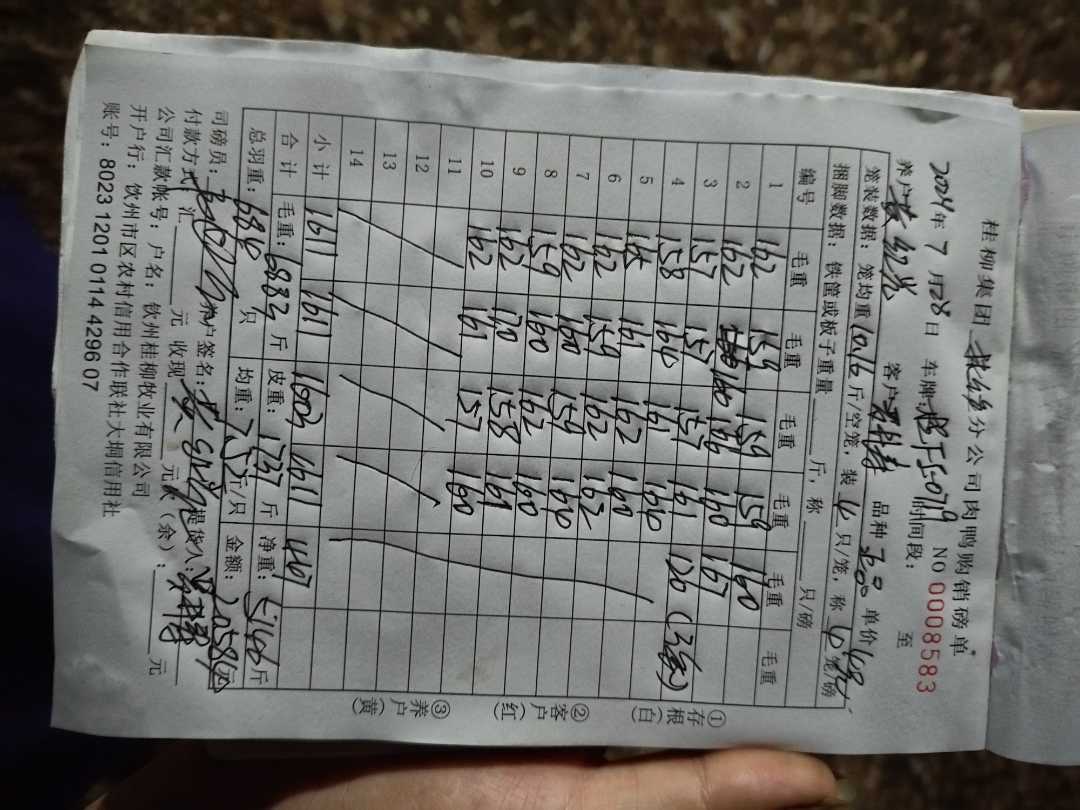 桂柳集团 分公司肉鸭购销磅单
2024年7月28日 车牌: NO 0008583
养户 客户 品种 308 单价 时间段: 至
笼装数据: 笼均重 10.16 斤/空笼, 装 4 只/笼, 称 6 笼/磅
捆脚数据: 铁筐或板子重量 斤, 称 只/磅
编号 毛重 毛重 毛重 毛重 毛重 毛重
1 162 159 159 159 160
2 162 160 169 160 157
3 157 157 157 161 130 (3笼)
4 158 166 161 160
5 165 161 162 160
6 162 159 162 162
7 162 160 159 160
8 159 160 162 160
9 162 170 158 169
10 162 161 157 160
11
12
13
14
小计 1611 1611 1603 1611 447
合计 毛重: 6883 斤 皮重: 1737 斤 净重: 5146 斤
总羽重: 只 均重: 7.5 斤/只 金额: 元
司磅员: 养户签名: 提货人:
付款方式: 汇 元 收现 元 欠(余): 元
公司汇款帐号: 户名: 钦州桂柳牧业有限公司
开户行: 钦州市区农村信用合作联社大垌信用社
账号: 8023 1201 0114 4296 07
①存根(白) ②客户(红) ③养户(黄)